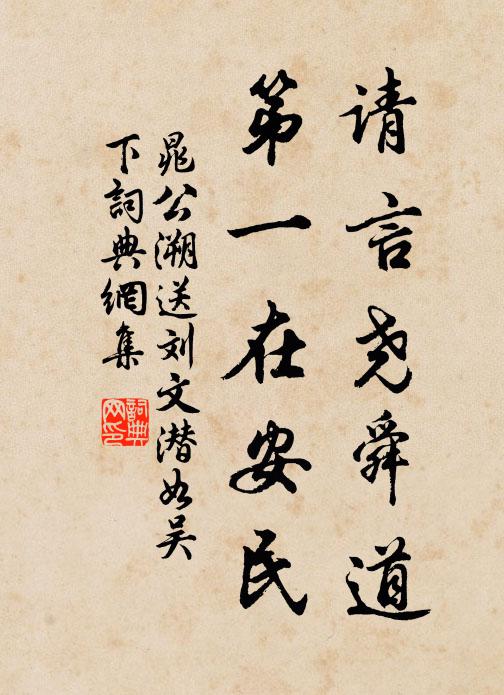 请言尧舜道
第一在安民
晁公溯送刘文潜如吴
下詞典網集
詞典
网印